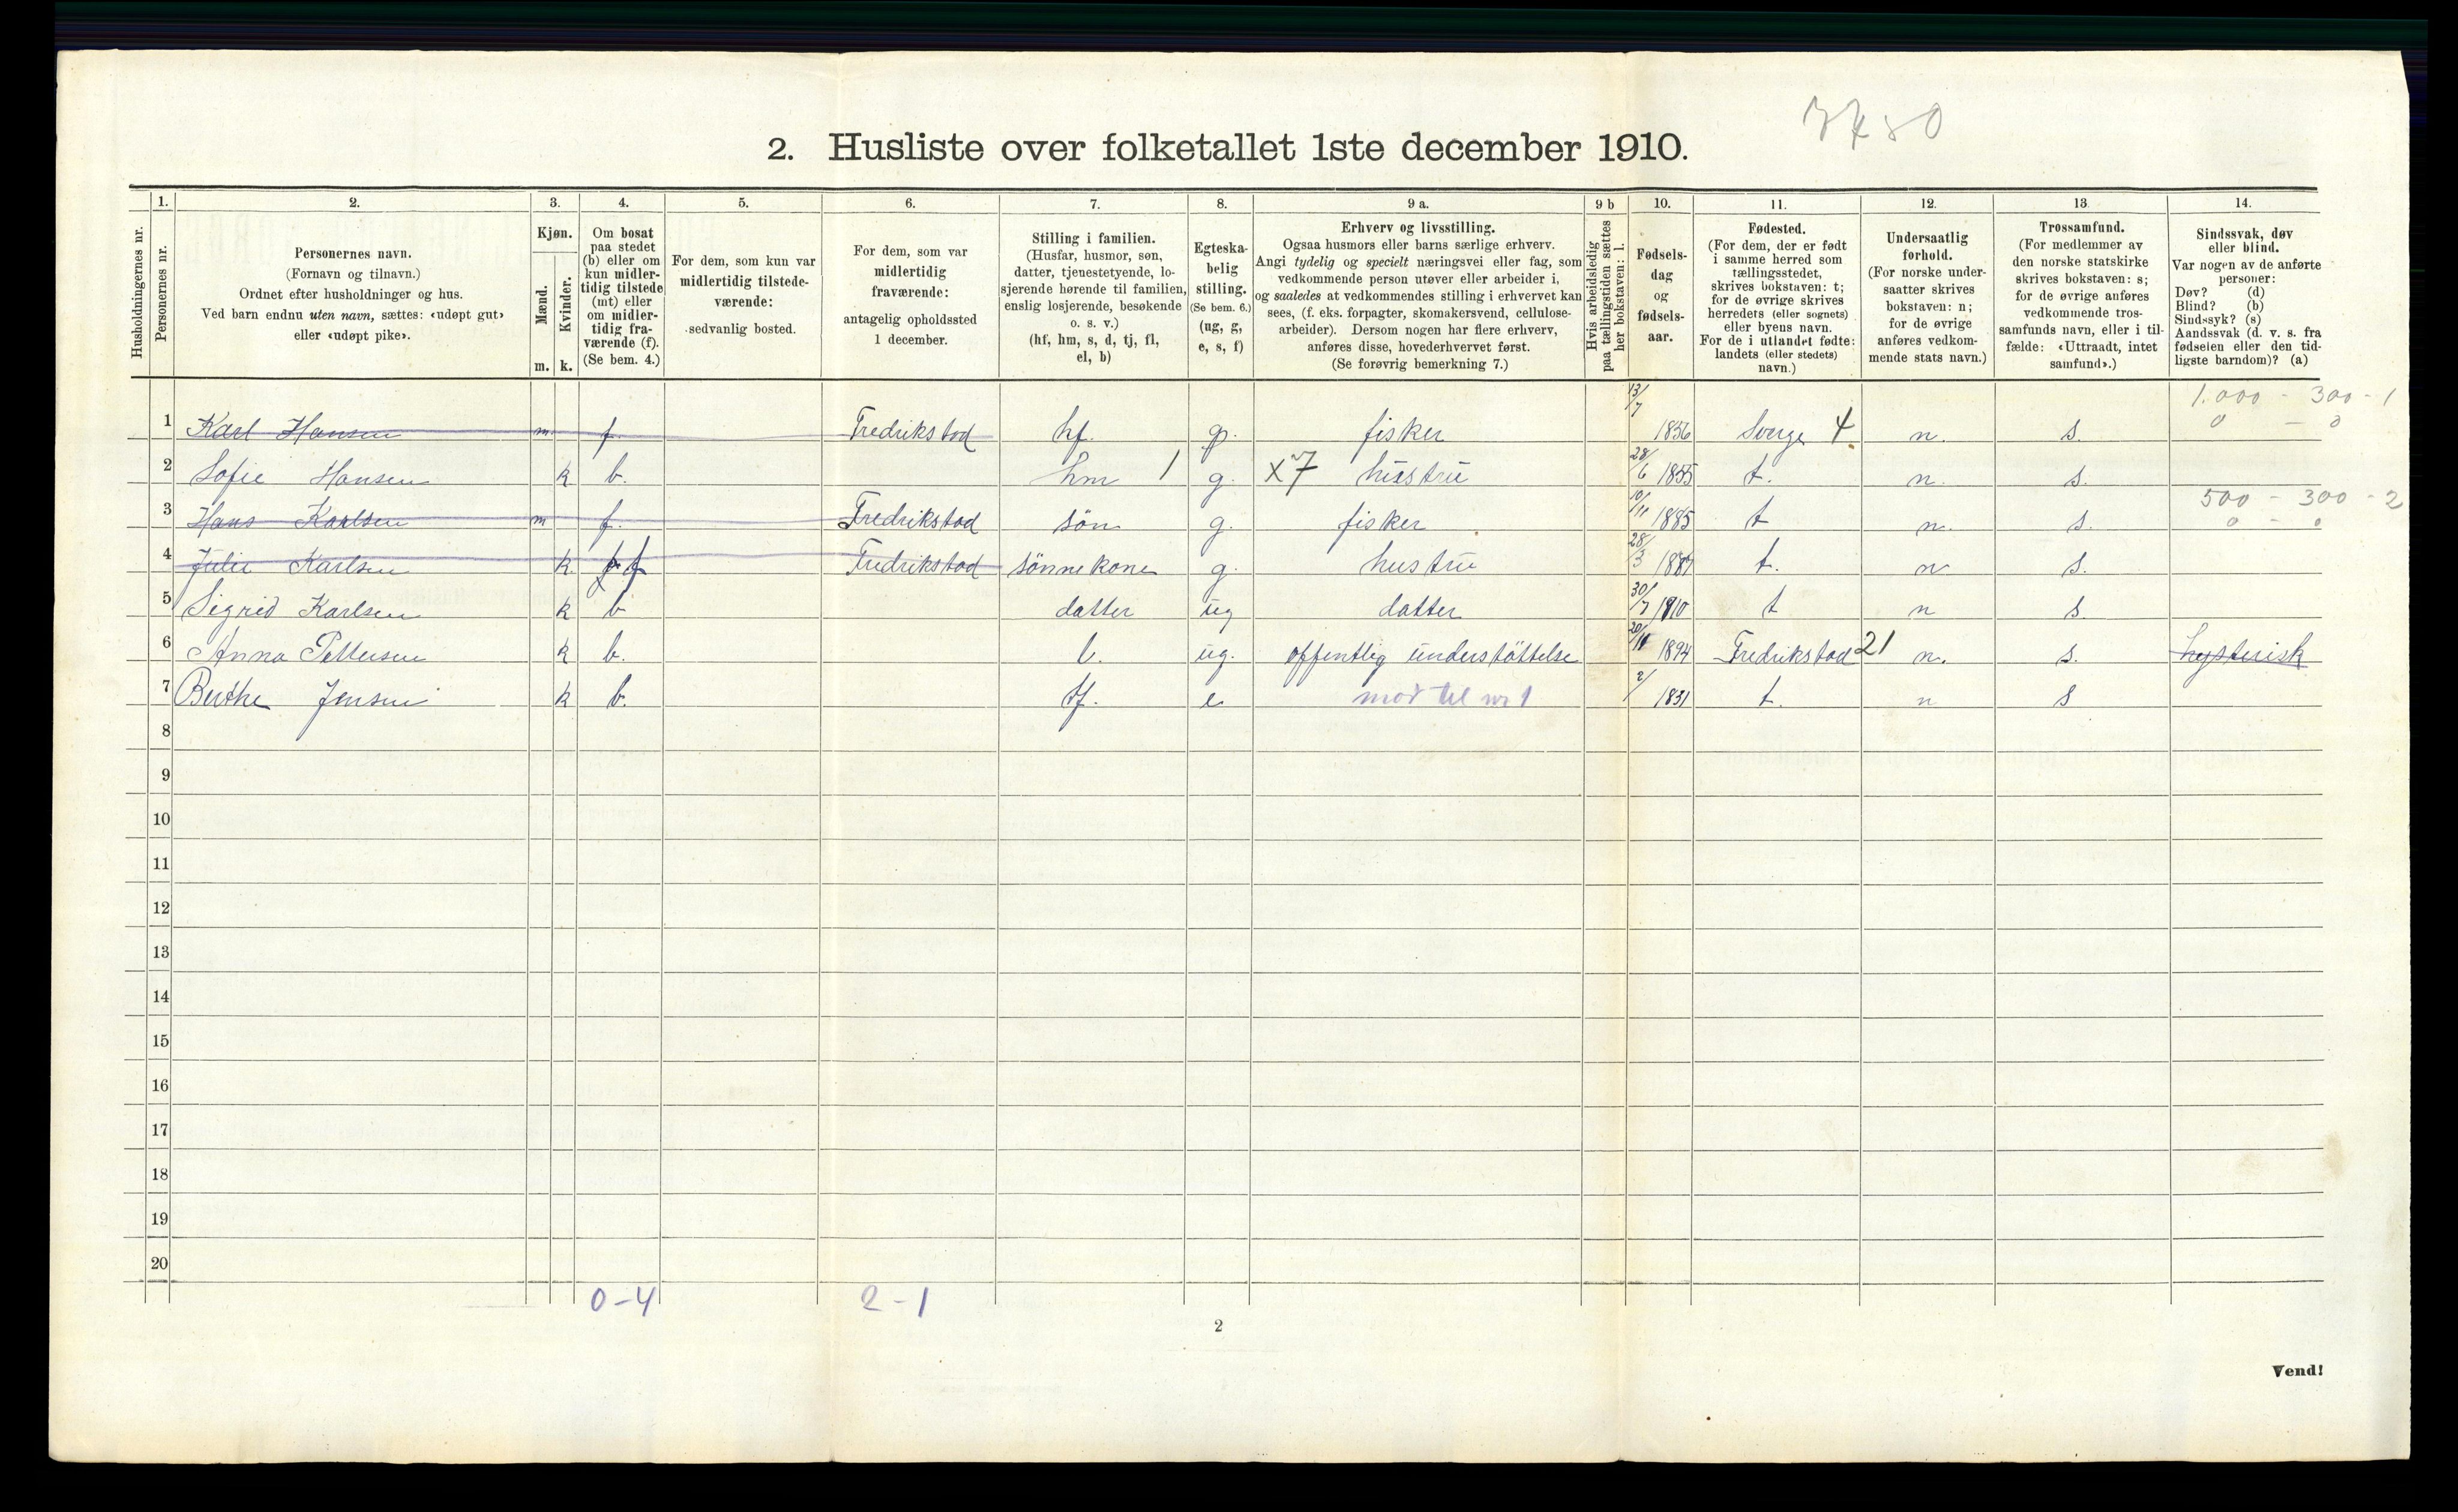 7480
2. Husliste over folketallet 1ste december 1910.
Husholdningernes nr.
Personernes nr.
1. 2. 3. 4. 5. 6. 7. 8. 9 a. 9 b 10. 11. 12. 13. 14.
Personernes navn.
(Fornavn og tilnavn.)
Ordnet efter husholdninger og hus.
Ved barn endnu uten navn, sættes: «udøpt gut»
eller «udøpt pike».
Kjøn.
Mænd.
Kvinder.
m. k.
Om bosat
paa stedet
(b) eller om
kun midler-
tidig tilstede
(mt) eller
om midler-
tidig fra-
værende (f).
(Se bem. 4.)
For dem, som kun var
midlertidig tilstede-
værende:
sedvanlig bosted.
For dem, som var
midlertidig
fraværende:
antagelig opholdssted
1 december.
Stilling i familien.
(Husfar, husmor, søn,
datter, tjenestetyende, lo-
sjerende hørende til familien,
enslig losjerende, besøkende
o. s. v.)
(hf, hm, s, d, tj, fl,
el, b)
Egteska-
belig
stilling.
(Se bem. 6.)
(ug, g,
e, s, f)
Erhverv og livsstilling.
Ogsaa husmors eller barns særlige erhverv.
Angi tydelig og specielt næringsvei eller fag, som
vedkommende person utøver eller arbeider i,
og saaledes at vedkommendes stilling i erhvervet kan
sees, (f. eks. forpagter, skomakersvend, cellulose-
arbeider). Dersom nogen har flere erhverv,
anføres disse, hovederhvervet først.
(Se forøvrig bemerkning 7.)
Hvis arbeidsledig
paa tællingstiden sættes
her bokstaven: l.
Fødsels-
dag
og
fødsels-
aar.
Fødested.
(For dem, der er født
i samme herred som
tællingsstedet,
skrives bokstaven: t;
for de øvrige skrives
herredets (eller sognets)
eller byens navn.
For de i utlandet fødte:
landets (eller stedets)
navn.)
Undersaatlig
forhold.
(For norske under-
saatter skrives
bokstaven: n;
for de øvrige
anføres vedkom-
mende stats navn.)
Trossamfund.
(For medlemmer av
den norske statskirke
skrives bokstaven: s;
for de øvrige anføres
vedkommende tros-
samfunds navn, eller i til-
fælde: «Uttraadt, intet
samfund».)
Sindssvak, døv
eller blind.
Var nogen av de anførte
personer:
Døv? (d)
Blind? (b)
Sindssyk? (s)
Aandssvak (d. v. s. fra
fødselen eller den tid-
ligste barndom)? (a)
1.000 - 300 - 1
0 - 0
1 Karl Hansen m f. Fredrikstad hf. g. fisker 13/7 1856 Sverge 4 n. s.
2 Sofie Hansen k b. hm 1 g. x7 hustru 28/6 1855 t. n. s.
500 - 300 - 2
0 - 0
3 Hans Karlsen m f. Fredrikstad sön g. fisker 10/11 1885 t n. s.
4 Julie Karlsen k f Fredrikstad sönnekone g. hustru 28/3 1887 t. n s.
5 Sigrid Karlsen k b datter ug datter 30/7 1910 t n s.
6 Anna Pettersen k b. l. ug. offentlig understöttelse 20/11 1894 Fredrikstad 21 n. s. hysterisk
7 Berthe Jensen k b. e mor til nr 1 2/ 1831 t. n s
8
9
10
11
12
13
14
15
16
17
18
19
20
0-4 2-1
2
Vend!